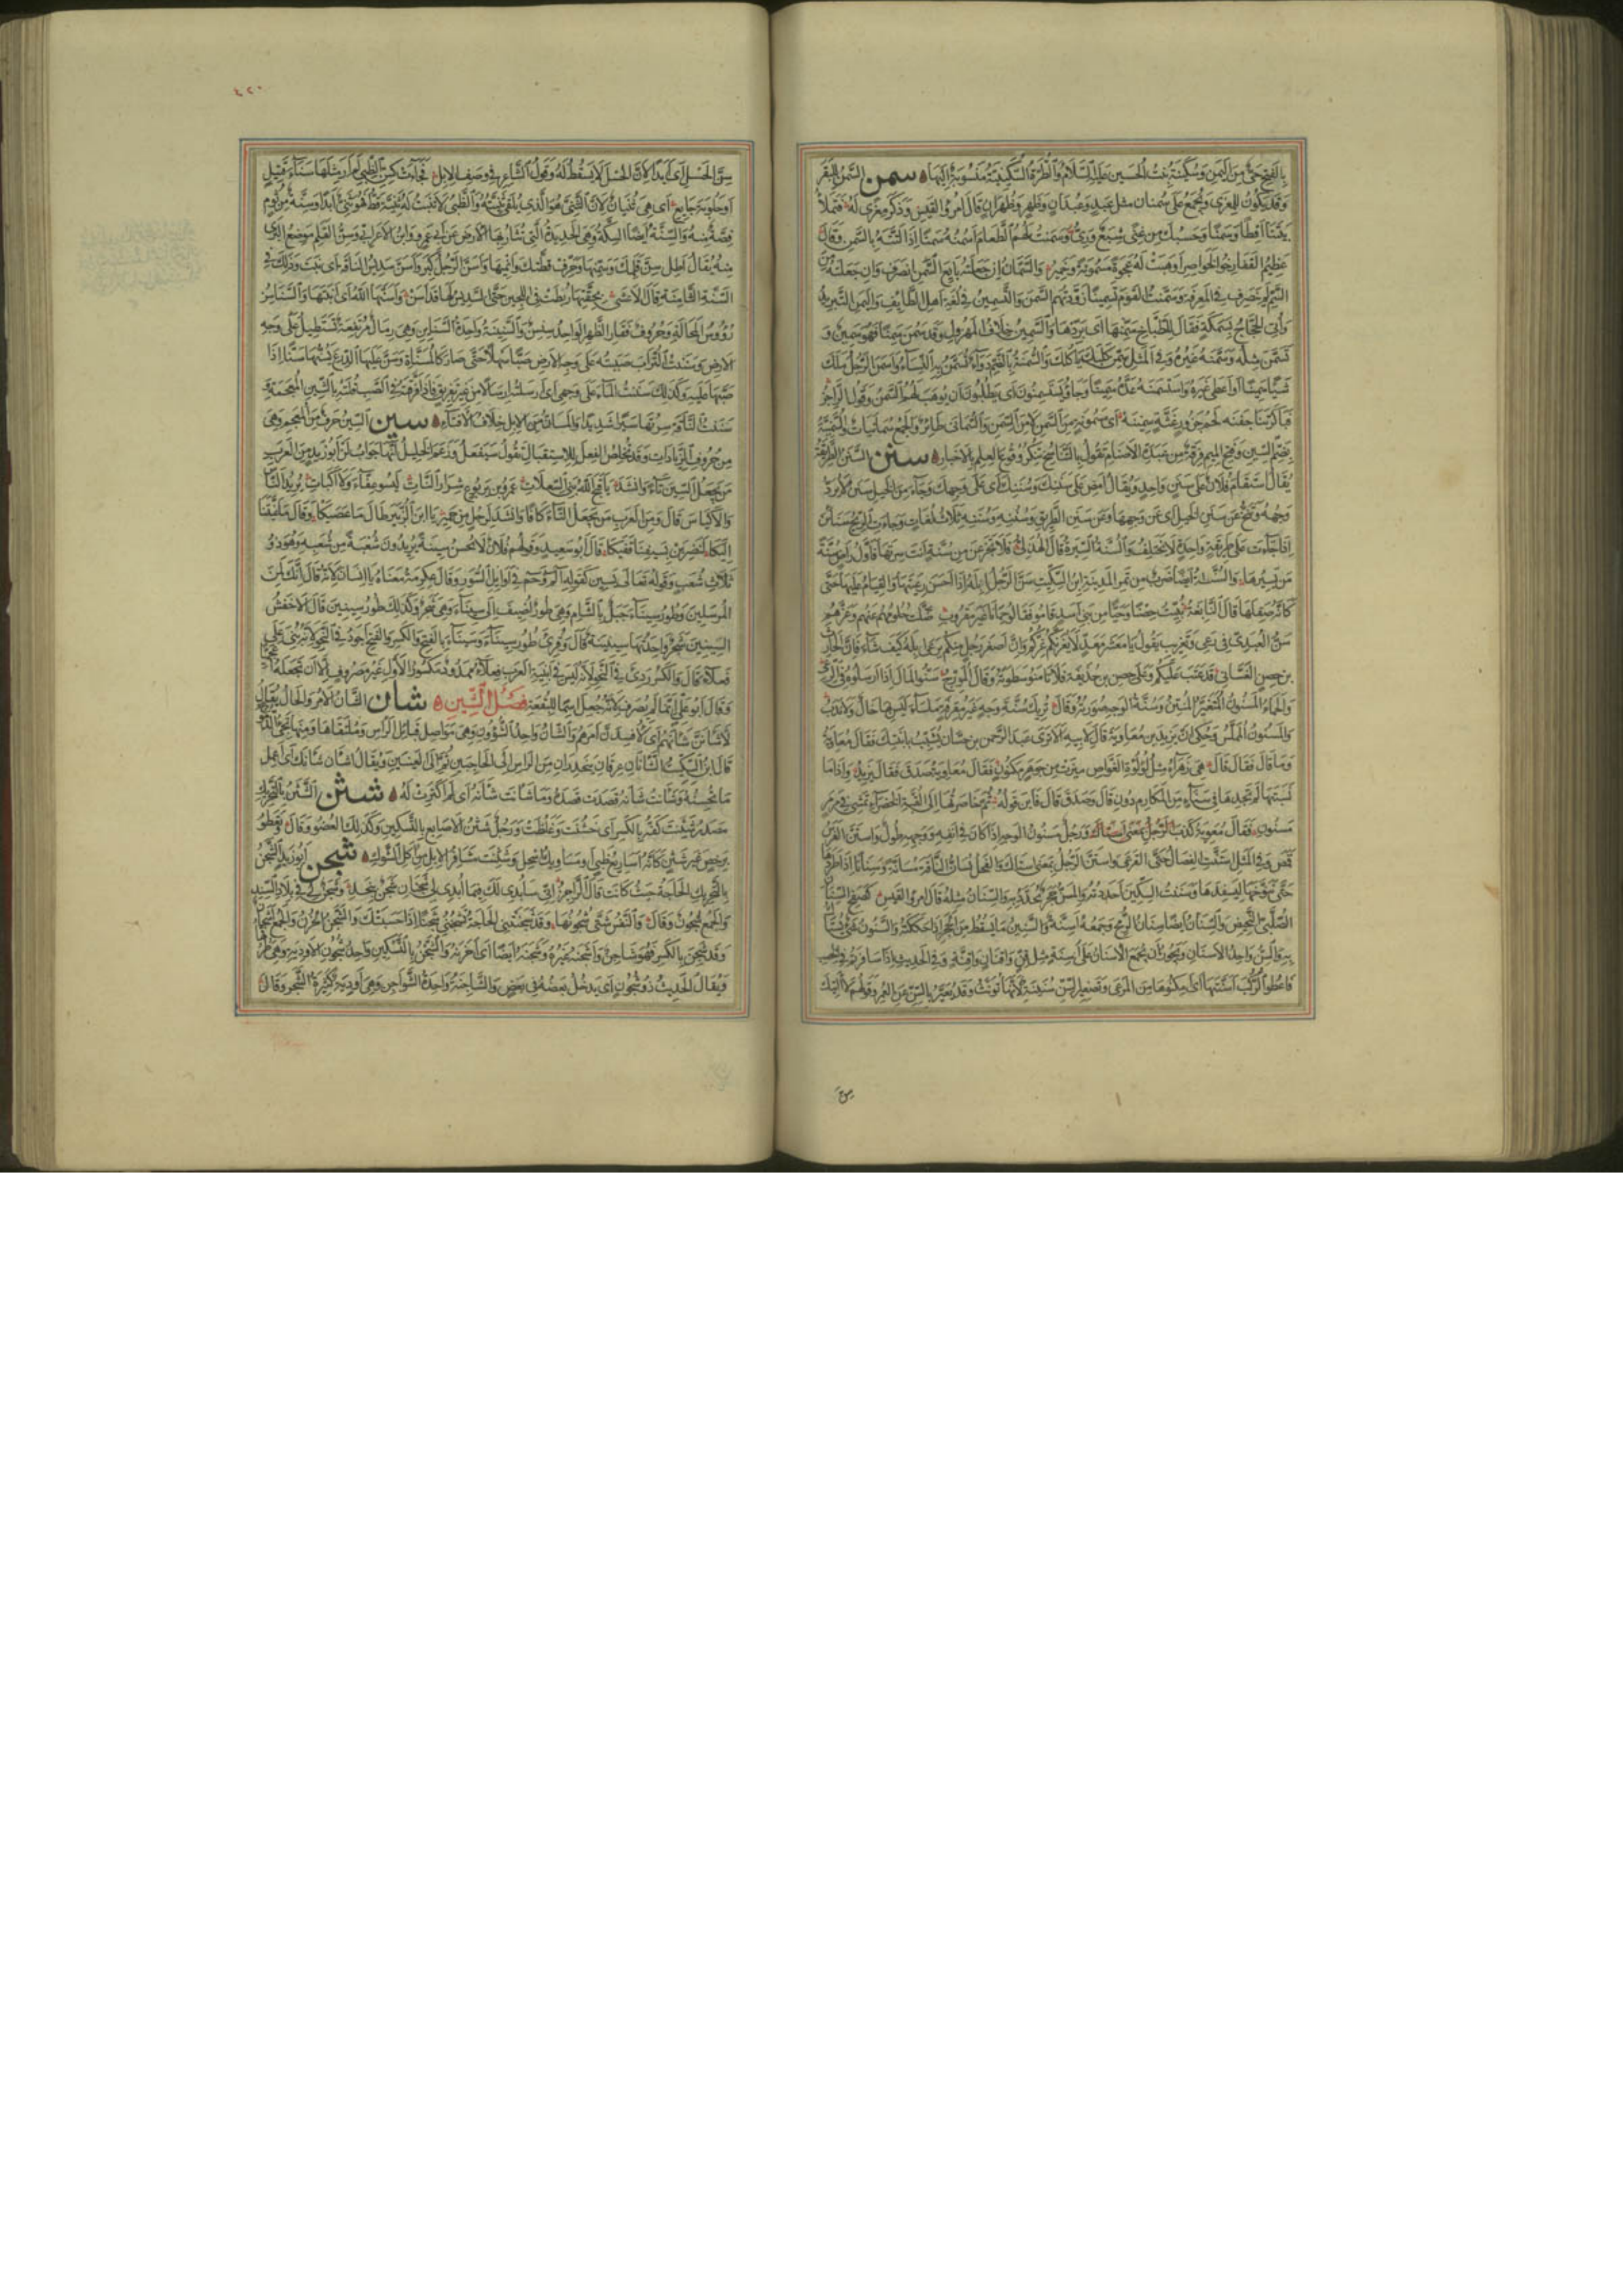 بالفتح حي من اليمن وسكينة بنت الحسين عليه السلام والطرة السكينية منسوبة اليها سمن السمن للبقر
وقد يكون للمعزى ويجمع على سمنان مثل عبد وعبدان وظهر وظهران قال امرؤ القيس وذكر معزى له فتملأ
بيتنا اقطا وسمنا وحسبك من غنى شبع وري وسمنت لهم الطعام اسمنه سمنا اذا لتته بالسمن وقال
عظيم القفا رخو الخواصر اوهبت له عجوة مسمونة وخمير والسمان ان جعلته بايع السمن انصرف وان جعلته من
السم لم ينصرف في المعرفة وسمنت القوم تسمينا زودتهم السمن والتسمين في لغة اهل الطايف واليمن التبريد
واتي الحجاج بسمكة فقال للطباخ سمنها اى بردها والسمين خلاف المهزول وقد سمن سمنا فهو سمين و
تسمن مثله وسمنه غيره وفي المثل سمن كلبك ياكلك والسمنة بالضم دواء تسمن به النساء واسمن الرجل ملك
شيا سمينا او اعطى غيره واستسمنه عده سمينا وجاؤا يستسمنون اى يطلبون ان يوهب لهم السمن وقول الراجز
فباكرتنا جفنة لحم جزور غثة سمينه اى مسمونة من السمن لا من السمن والسمانى طائر والجمع سمانيات والسمنية
بضم السين وفتح الميم فرقة من عبدة الاصنام تقول بالتناسخ وتنكر وقوع العلم بالاخبار سنن السنن الطريقة
يقال استقام فلان على سنن واحد ويقال امض على سننك وسننك اى على وجهك وجاء من الخيل سنن لا يرد
وجهه وتنح عن سنن الخيل اى عن وجهها وعن سنن الطريق وسننه وسننه ثلاث لغات وجاءت الريح سناين
اذا جاءت على طريقة واحدة لا تختلف والسنة السيرة قال الهذلي فلا تجزعن من سنة انت سرتها فاول راض سنة
من يسيرها والسنة ايضا ضرب من تمر المدينة ابن السكيت سن الرجل ابله اذا احسن رعيتها والقيام عليها حتى
كانه صقلها قال النابغة نبئت حصنا وحيا من بني اسد قاموا فقالوا حمانا غير مقروب ضلت حلومهم عنهم وغرهم
سن المعيدي في رعي وتعزيب يقول يا معشر معد لا يغرنكم عزكم وان اصغر رجل منكم يرعى ابله كيف شاء فان الحارث
بن حصن الغساني قد عتب عليكم وعلى حصن بن حذيفة فلا تامنوا سطوته وقال المورج سنوا المال اذا ارسلوه في الرعي
والحمأ المسنون المتغير المنتن وسنة الوجه صورته وقال تريك سنة وجه غير مقرفة ملساء ليس بها خال ولا ندب
والمسنون المملس وحكى ان يزيد بن معاوية قال لابيه الا ترى عبد الرحمن بن حسان يشبب بابنتك فقال معاوية
وما قال فقال قال هي زهراء مثل لؤلؤة الغواص ميزت من جوهر مكنون فقال معاوية صدق فقال يزيد واذا ما
نسبتها لم تجدها في سناء من المكارم دون قال وصدق قال فاين قوله ثم خاصرتها الى القبة الخضراء تمشي في مرمر
مسنون فقال معوية كذب ورجل مسنون الوجه اذا كان في انفه ووجهه طول واستن الفرس
قمص وفي المثل استنت الفصال حتى القرعى واستن الرجل بمعنى استاك والفحل يسان الناقة مسانة وسنانا اذا طردها
حتى تنوخها ليسفدها وسننت السكين احددته والمسن حجر يحدد به والسنان مثله قال امرؤ القيس كصفح السنان
الصلبي النحيض والسنان ايضا سنان الرمح وجمعه اسنة والسنين ما يسقط من الحجر اذا حككته والسنون شيء يستاك
به والسن واحد الاسنان ويجوز ان تجمع الاسنان على اسنة مثل قن واقنان واقنة وفي الحديث اذا سافرتم في خصب
فاعطوا الركب اسنتها اى امكنوها من المرعى وتصغير السن سنينة لانها تونث وقد يعبر بالسن عن العمر وقولهم لا اتيك
سن الحسل
٤٢٠
سن الحسل اى ابدا لان الحسل لا يسقط له وقول الشاعر في وصف الابل فجاءت كسن الظبي لم ار مثلها سناء قتيل
او حلوبة جايع اى هي ثنيان لان الثني هو الذي يلقي ثنيته والظبي لا تنبت له ثنية قط فهو ثني ابدا وسنة من ثوم
فصة منه والسنة ايضا السكة وهي الحديدة التي تثار بها الارض عن ابي عمرو وابن الاعرابي وسن القلم موضع البري
منه يقال اطل سن قلمك وسمنها وحرف قطتك وايمنها واسن الرجل كبر واسن سديس الناقة اى نبت وذلك في
السنة الثامنة قال الاعشى بحقتها ربطت في اللجين حتى السديس لها قد اسن واسنها الله اى انبتها والسناسن
رؤوس المحالة وحروف فقار الظهر الواحد سنسن والسنينة واحدة السناين وهي رمال مرتفعة تستطيل على وجه
الارض وسننت التراب صببته على وجه الارض صبا سهلا حتى صار كالمسناة وسن عليها الدرع يسنها سنا اذا
صبها عليه وكذلك سننت الماء على وجهي اى ارسلته ارسالا من غير تفريق فاذا فرقته في الصب قلته بالشين المعجمة
سننت الناقة سرتها سيرا شديدا والمسان من الابل خلاف الافتاء سين السين حرف من المعجم وهي
من حروف الزيادات وقد تخلص الفعل للاستقبال تقول سيفعل وزعم الخليل انها جواب لن ابو زيد من العرب
من يجعل السين تاء وانشد يا قبح الله بني السعلات عمرو بن يربوع شرار النات ليسوا عفاء ولا اكيات يريد الناس
والاكياس قال ومن العرب من يجعل التاء كافا وانشد لرجل من حمير يا ابن الزبير طال ما عصيكا وطال ما عنيتنا
اليكا لنضربن بسيفنا قفيكا قال ابو سعيد وقولهم فلان لا يحسن سينه يريدون شعبة من شعبه وهو ذو
ثلاث شعب وقوله تعالى يسن كقوله الم وحم في اوايل السور وقال عكرمة معناه يا انسان لانه قال انك لمن
المرسلين وطور سيناء جبل بالشام وهي طور اضيف الى سيناء وهي شجر وكذلك طور سينين قال الاخفش
السينين شجر واحدتها سينينة قال وقرئ طور سيناء وسيناء بالفتح والكسر والفتح اجود في النحو لانه بني على
فعلاء قال والكسر ردي في النحو لانه ليس في ابنية العرب فعلاء ممدود مكسور الاول غير مصروف الا ان تجعله اعجميا
وقال ابو علي انما لم يصرف لانه جعل اسما للبقعة فصل الشين شان الشان الامر والحال يقال
لاشانن شانهم اى لافسدن امرهم والشان واحد الشؤون وهي مواصل قبائل الراس وملتقاها ومنها تجيء الدموع
قال ابن السكيت الشانان عرقان ينحدران من الراس الى الحاجبين ثم الى العينين ويقال اشان شانك اى اعمل
ما تحسنه وشانت شانه قصدت قصده وما شانت شانه اى لم اكترث له شثن الشثن بالتحريك
مصدر شثنت كفه بالكسر اى خشنت وغلظت ورجل شثن الاصابع بالتسكين وكذلك العضو وقال وتعطو
برخص غير شثن كانه اساريع ظبي او مساويك اسحل وشثنت مشافر الابل من اكل الشوك شجن ابو زيد الشجن
بالتحريك الحاجة حيث كانت قال الراجز اني سابدي لك فيما ابدي لي شجنان شجن بنجد وشجن لي في بلاد السند
والجمع شجون وقال والنفس شتى شجونها وقد شجنتني الحاجة تشجنني شجنا اذا حبستك والشجن الحزن والجمع اشجان
وقد شجن بالكسر فهو شاجن واشجنه غيره وشجنه ايضا اى احزنه والشجن بالتسكين واحد شجون الاودية وهي طرقها
ويقال الحديث ذو شجون اى يدخل بعضه في بعض والشاجنة واحدة الشواجن وهي اودية كثيرة الشجر وقال